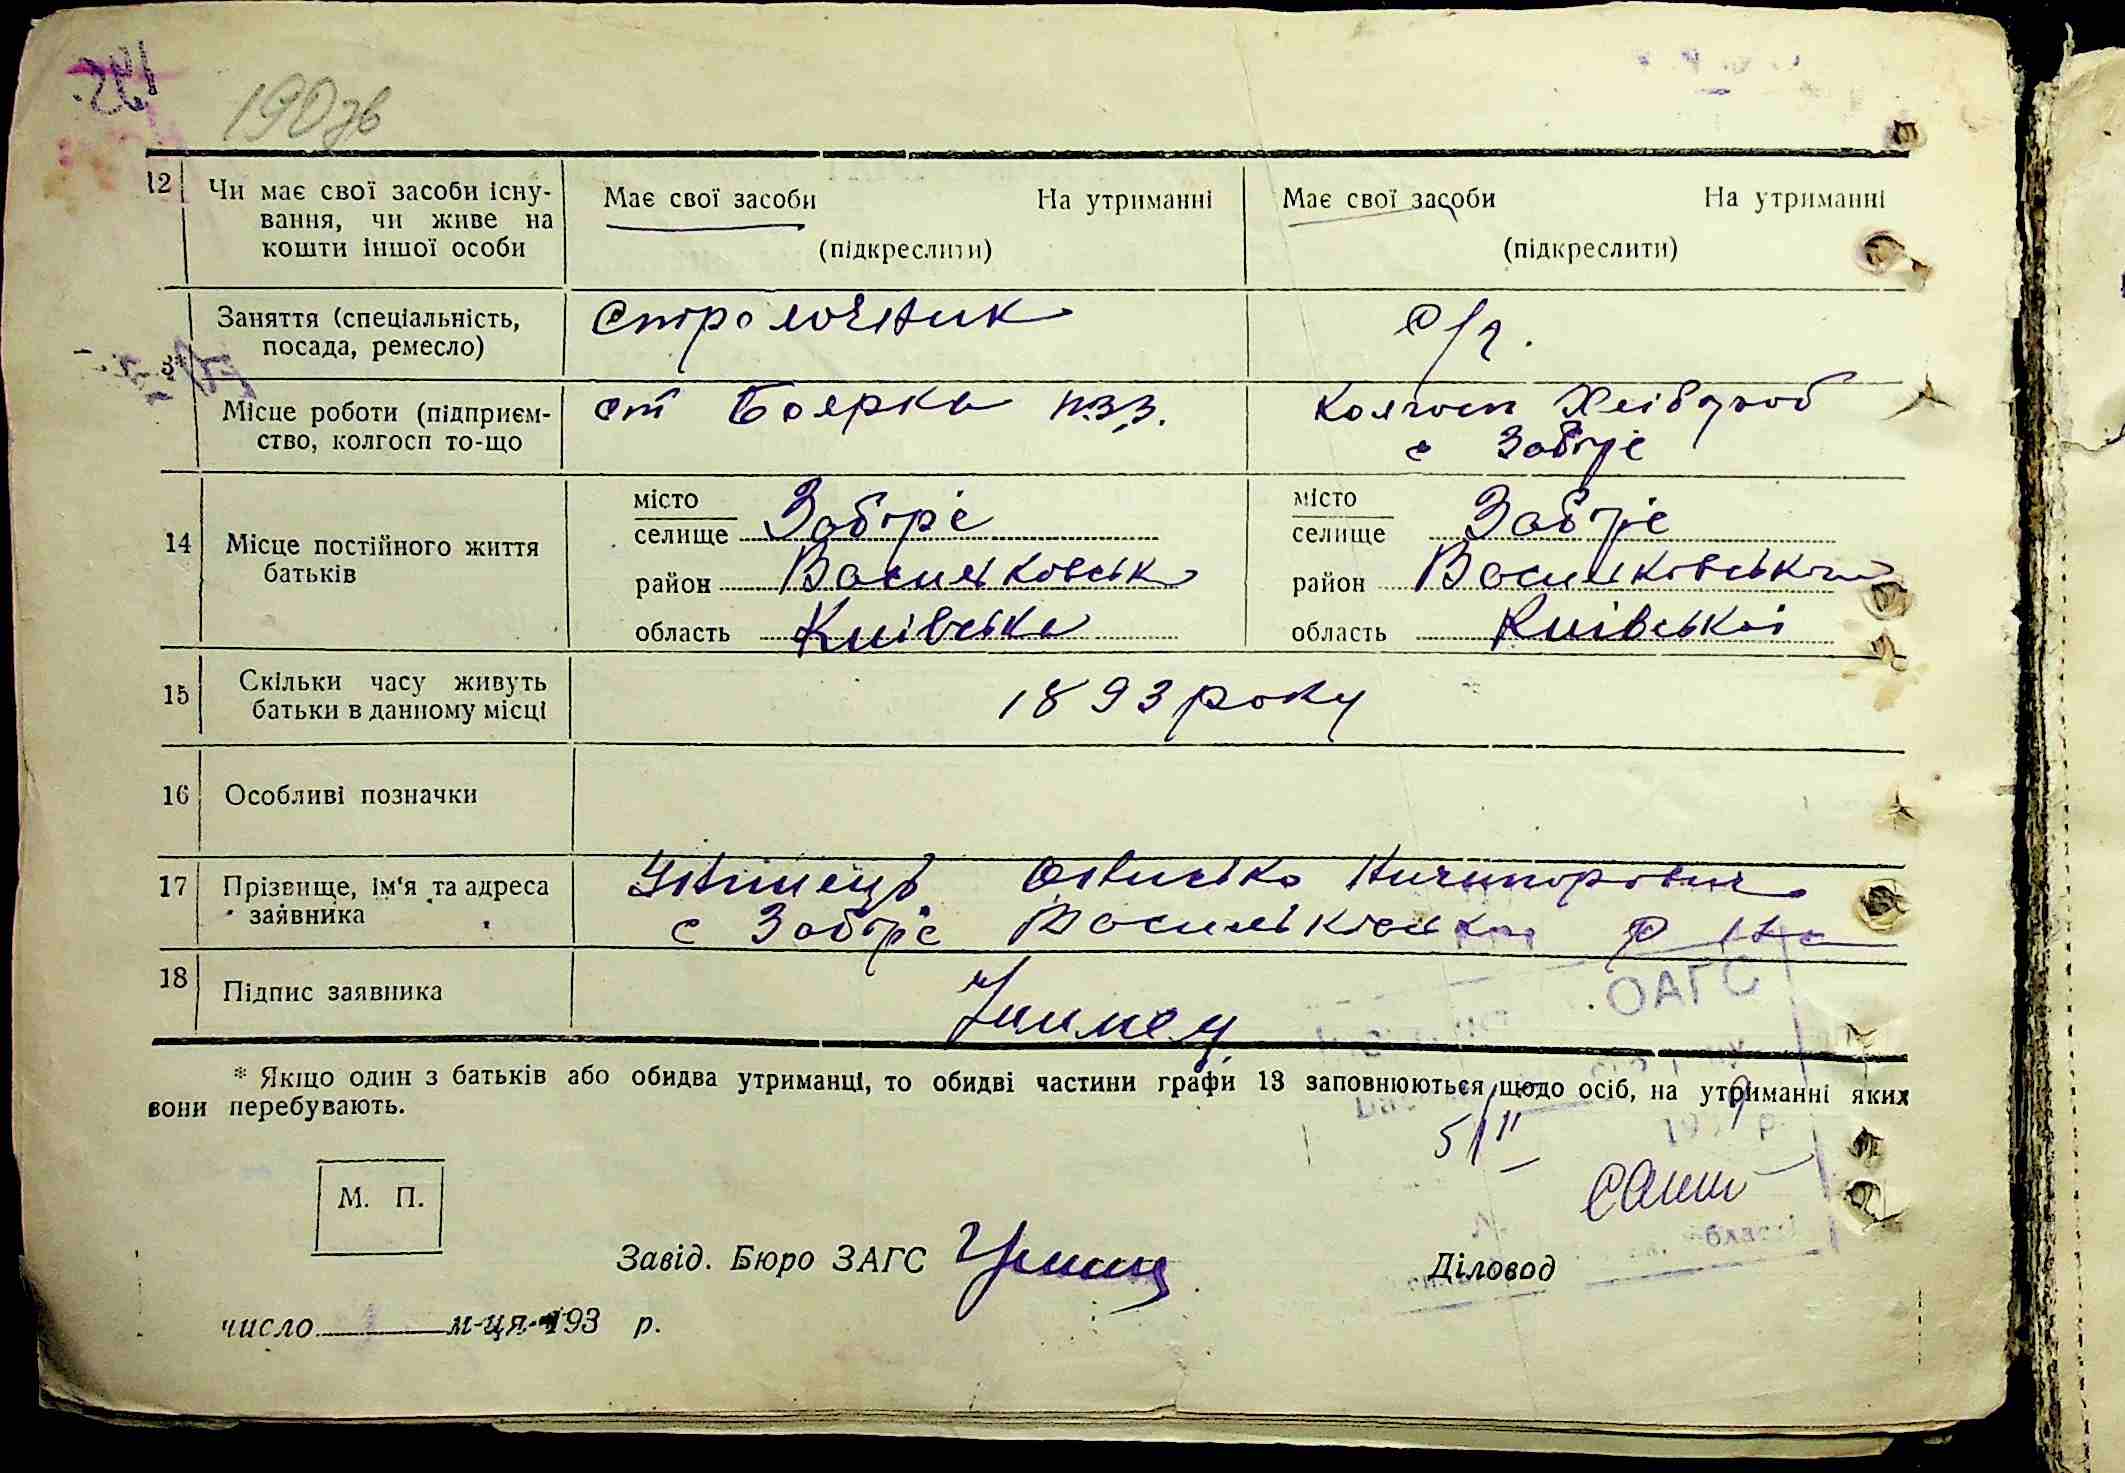 190 зв
12 Чи має свої засоби існу-
вання, чи живе на
кошти іншої особи
Має свої засоби На утриманні
(підкреслити)
Має свої засоби На утриманні
(підкреслити)
Заняття (спеціальність,
посада, ремесло)
Стролочник
с/г.
Місце роботи (підприєм-
ство, колгосп то-що
ст Боярка п.з.з.
Колгосп Хлібороб
с Забіре
14 Місце постійного життя
батьків
місто
селище Забірє
район Васильковськ
область Київська
місто
селище Забірє
район Васильковського
область Київської
15 Скільки часу живуть
батьки в данному місці
1893 року
16 Особливі позначки
17 Прізвище, ім'я та адреса
заявника
Ничипорович
с Забірє Васильківського р
18 Підпис заявника
ОАГС
* Якщо один з батьків або обидва утриманці, то обидві частини графи 13 заповнюються щодо осіб, на утриманні яких
вони перебувають.
5/II
М. П.
Завід. Бюро ЗАГС
Діловод
число м-ця 193 р.